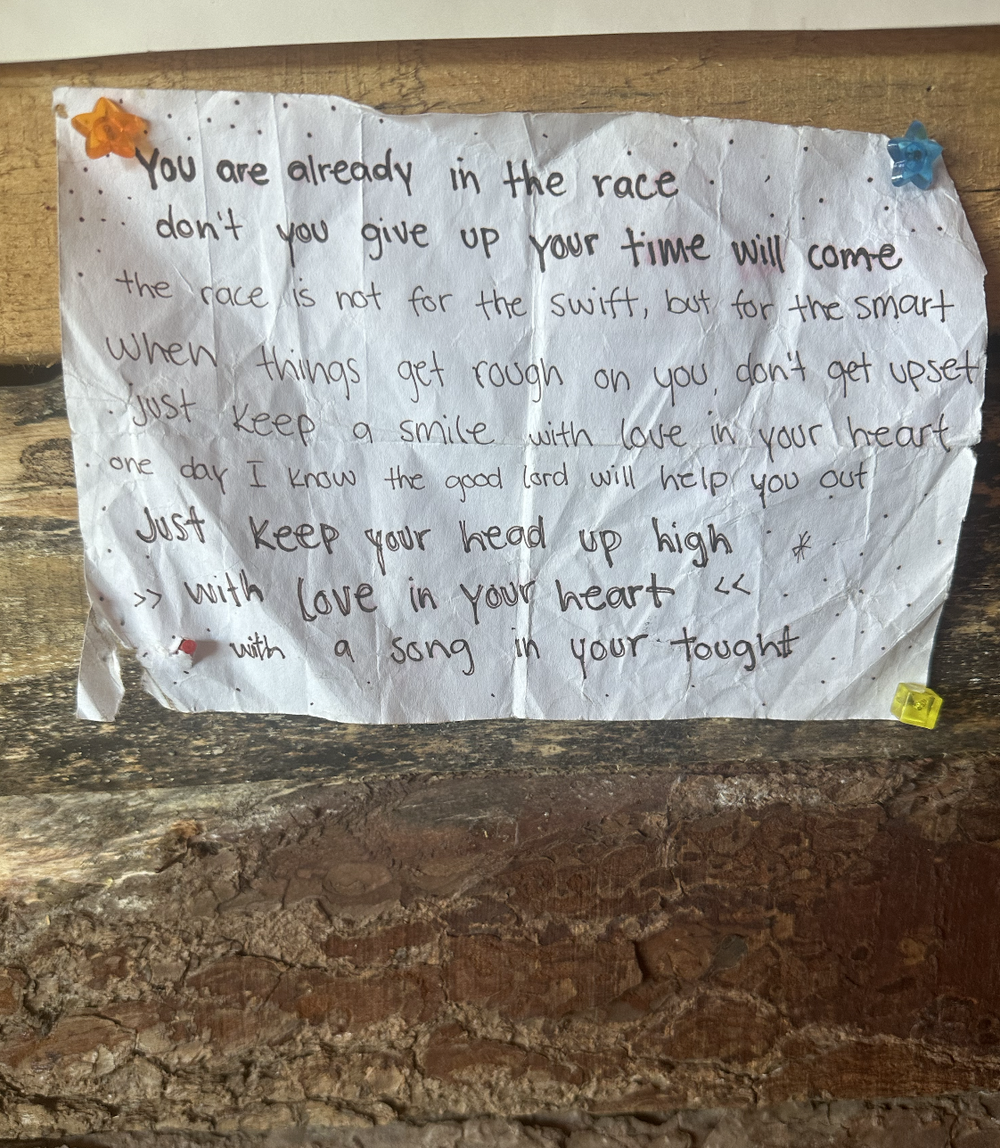 You are already in the race
don't you give up your time will come
the race is not for the swift, but for the smart
When things get rough on you, don't get upset
just keep a smile with love in your heart
one day I know the good lord will help you out
Just keep your head up high *
>> with love in your heart <<
with a song in your tought